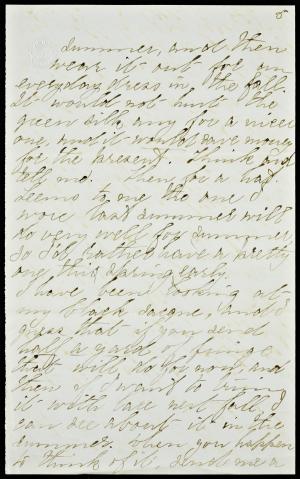 5
summer, and then
wear it out for an
everyday dress in the fall.
It would not hurt the
green silk any for a nicer
one, and it would save money
for the present. Think and
tell me. Then for a hat.
Seems to me the one I
wore last summer will
do very well for summer
So I'd rather have a pretty
one this spring early.
I have been looking at
my black sacque, and I
guess that if you send
half a yard of fringe
that will do for now and
then if I want to trim
it with lace next fall I
can see about it in the
summer. When you happen
to think of it, send me a